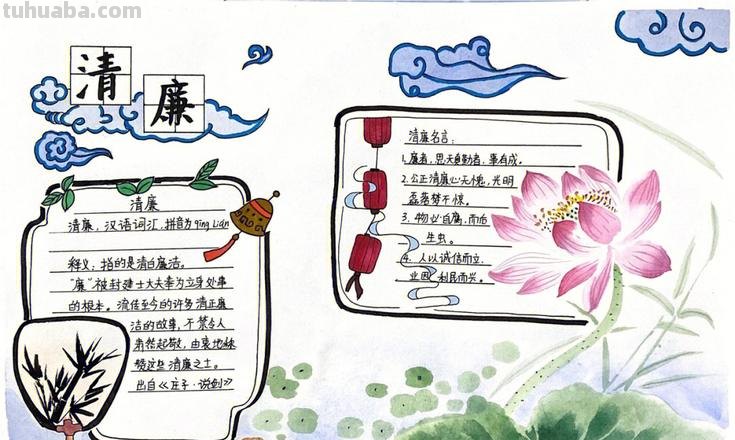 tuhuaba.com
清廉
清廉
清廉，汉语词汇，拼音为qīng Lián
释义：指的是清白廉洁。
"廉"被封建士大夫奉为立身处事
的根本。流传至今的许多清正廉
洁的故事，不禁令人
肃然起敬，由衷地
赞这些清廉之士。
出自《庄子·说剑》
清廉名言：
1.廉者，思天自勤者，事有成。
2.公正清廉心无愧，光明
磊落梦不惊。
3.物必自腐，而后
生虫。
4.人以诚信而立，
业因利民而兴。